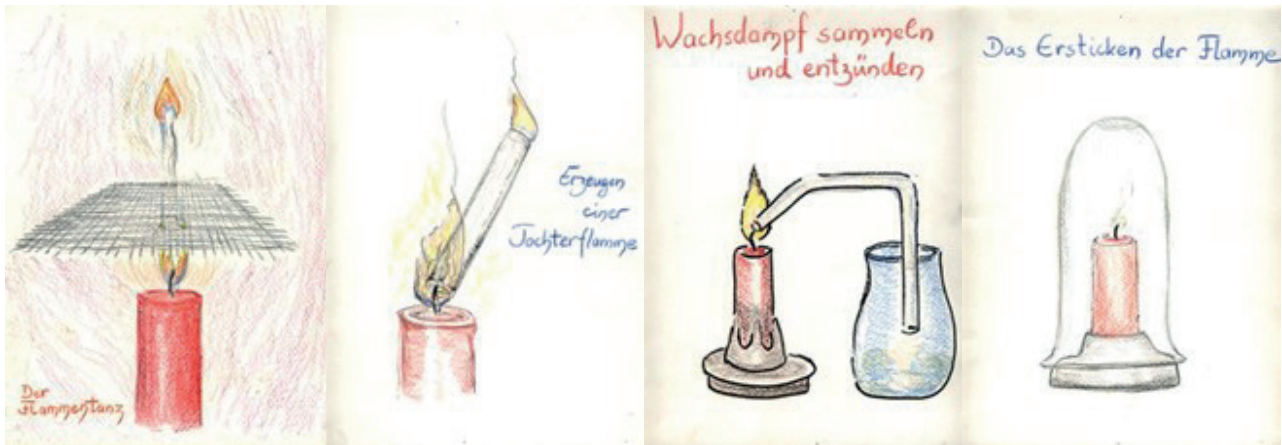 Der
Flammentanz
Erzeugen
einer
Tochterflamme
Wachsdampf sammeln
und entzünden
Das Ersticken der Flamme